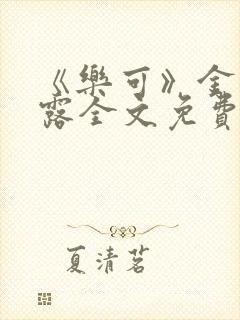 《樂可》金
露全文免費
夏清茗